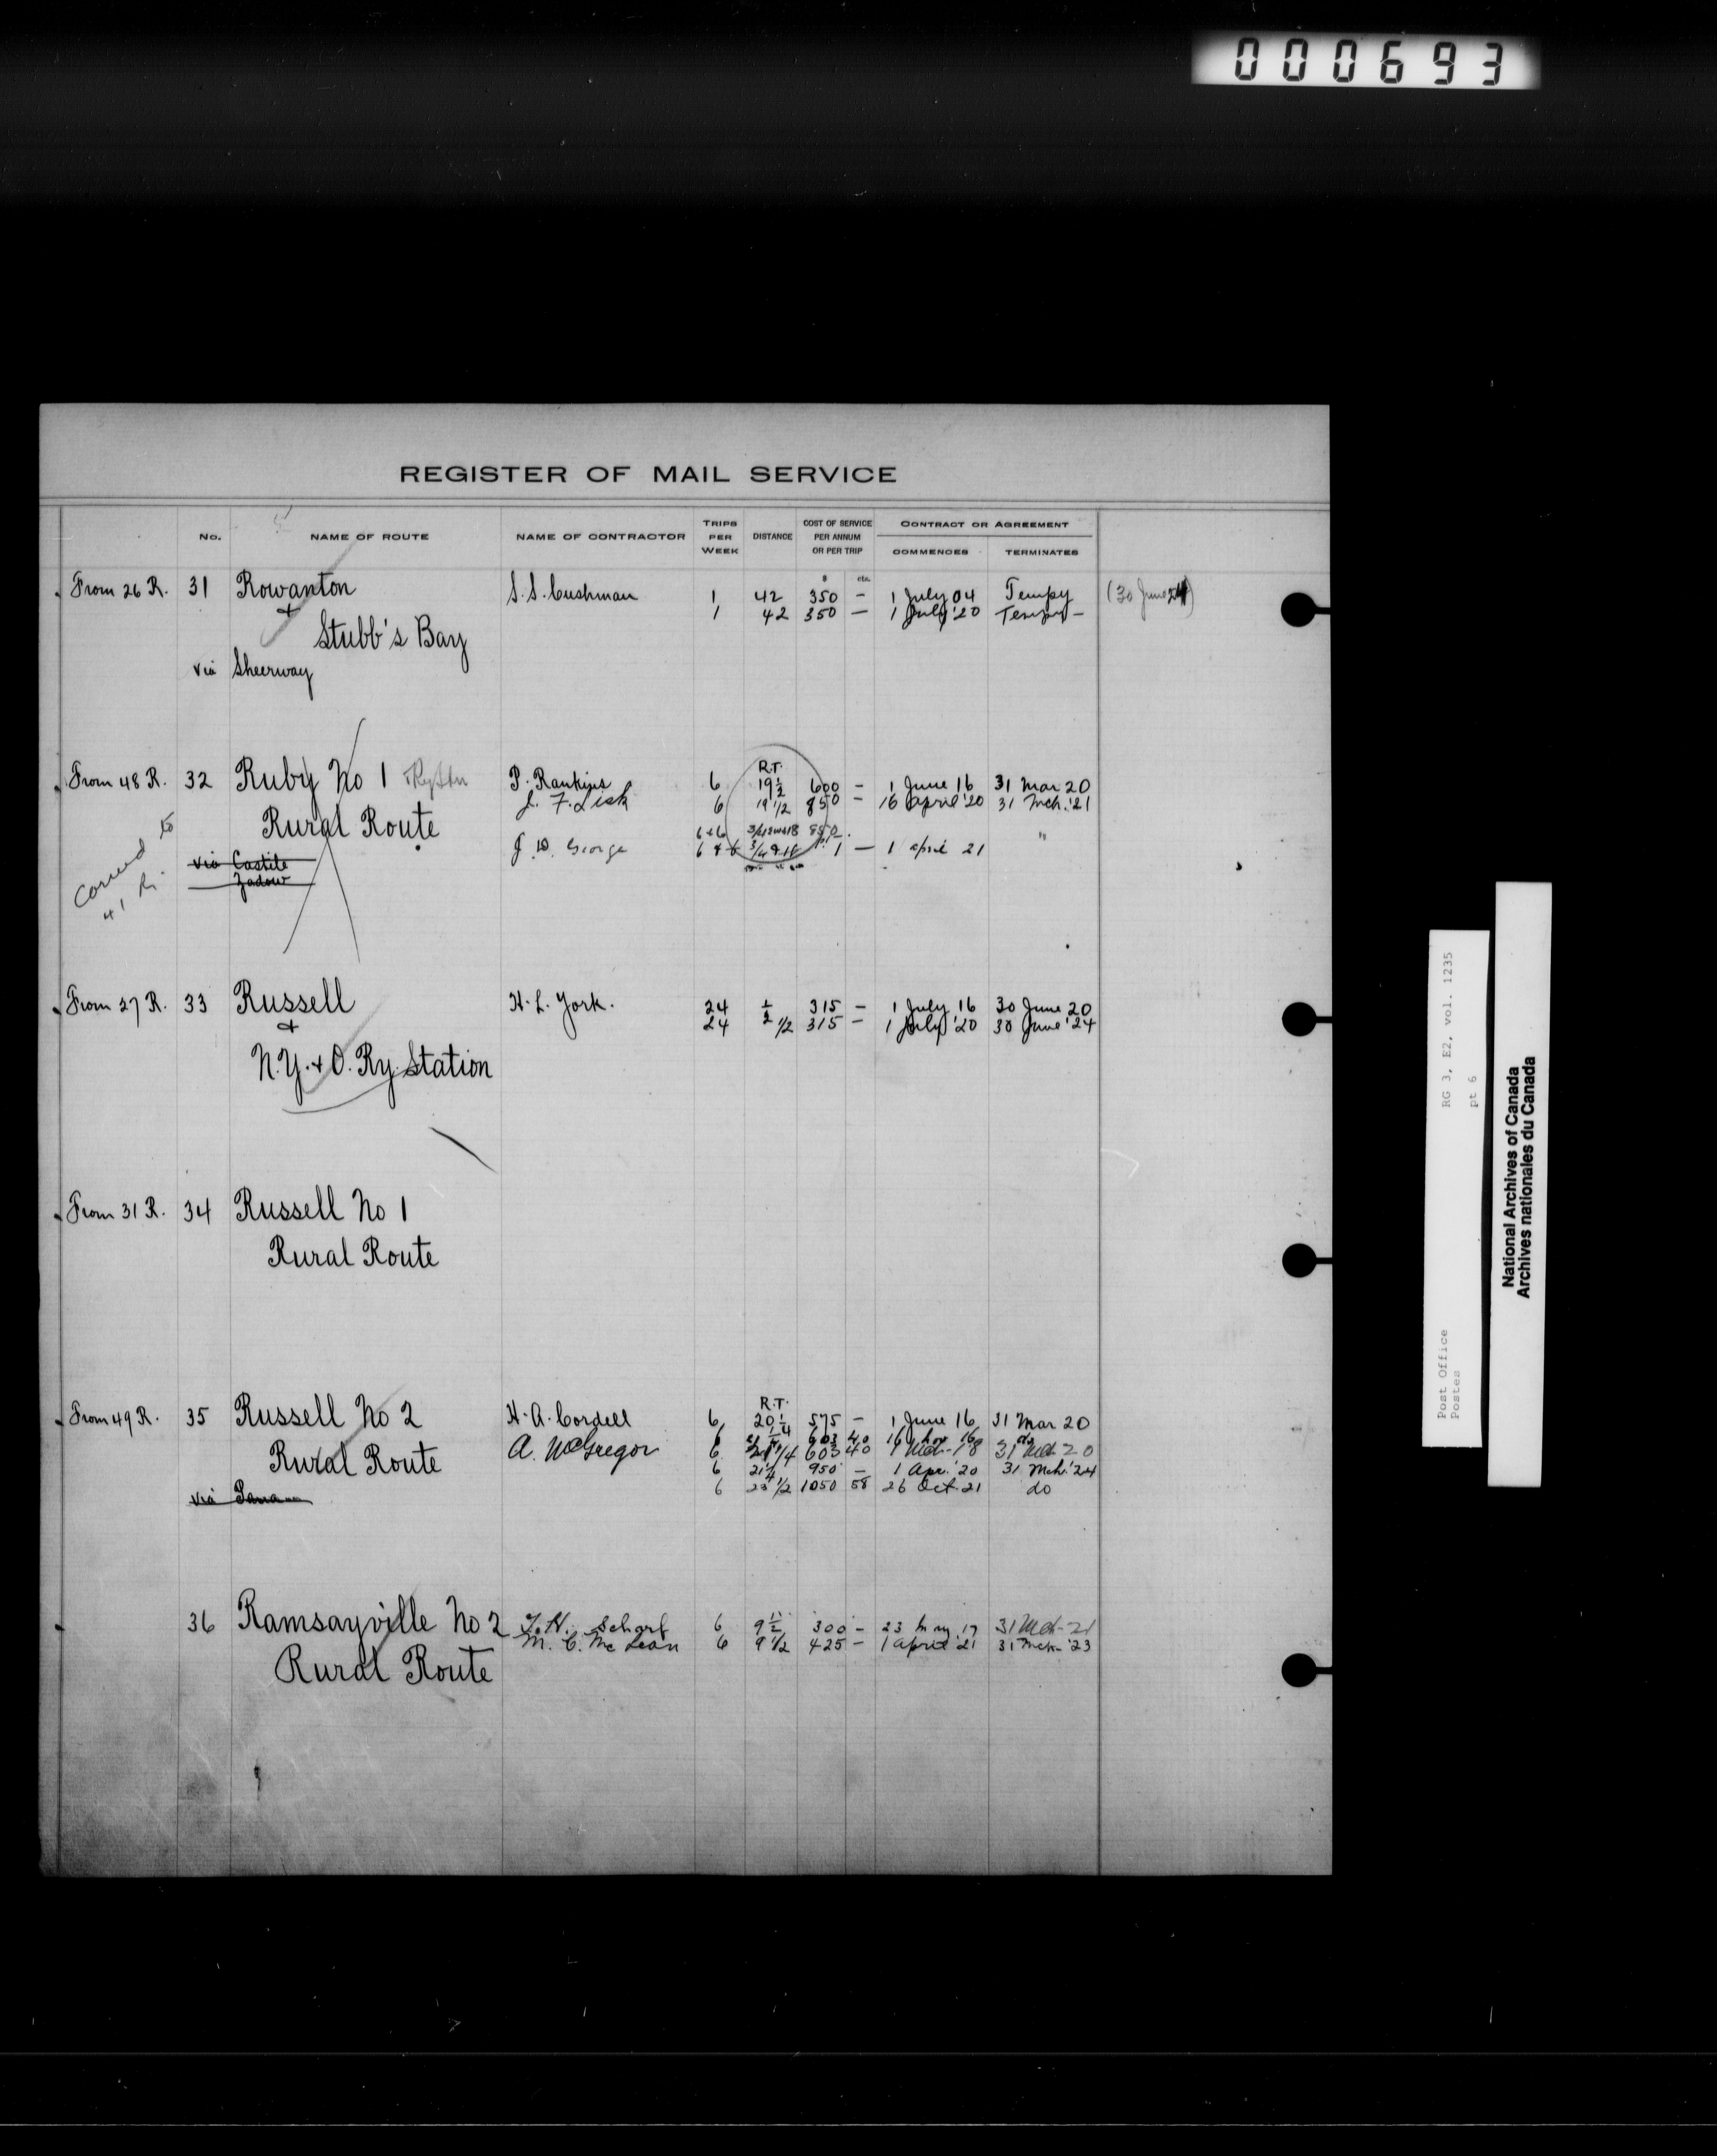 000693
REGISTER OF MAIL SERVICE
No. NAME OF ROUTE NAME OF CONTRACTOR TRIPS PER WEEK DISTANCE COST OF SERVICE PER ANNUM OR PER TRIP CONTRACT OR AGREEMENT COMMENCES TERMINATES
$ cts.
From 26 R. 31 Rowanton S. S. Cushman 1 42 350 – 1 July 04 Tempy (30 June 24)
& 1 42 350 – 1 July '20 Tempy –
Stubb's Bay
via Sheerway
R.T.
From 48 R. 32 Ruby No 1 P. Rankins 6 19 1/2 600 – 1 June 16 31 Mar 20
J. F. Lisk 6 19 1/2 850 – 16 April '20 31 Mch. '21
Rural Route 6+6 850
J. D. George 6 & 6 1 – 1 April 21 "
via Castile
Zadow
Carried to
41 R.
From 27 R. 33 Russell H. L. York. 24 1/2 315 – 1 July 16 30 June 20
& 24 1/2 315 – 1 July '20 30 June '24
N.Y. & O. Ry. Station
From 31 R. 34 Russell No 1
Rural Route
R.T.
From 49 R. 35 Russell No 2 H. A. Cordell 6 20 1/4 575 – 1 June 16 31 Mar 20
6 603 40 16 Nov 16 do
Rural Route A. McGregor 6 21 1/4 603 40 1 Mch. 18 31 Mch 20
6 21 1/4 950 – 1 Apr. '20 31 Mch. '24
via 6 23 1/2 1050 58 26 Oct. 21 do
36 Ramsayville No 2 T. H. Scharf 6 9 1/2 300 – 23 May 17 31 Mch – 21
M. C. McLean 6 9 1/2 425 – 1 April '21 31 Mch. '23
Rural Route
RG 3, E2, vol. 1235
pt 6
Post Office
Postes
National Archives of Canada
Archives nationales du Canada